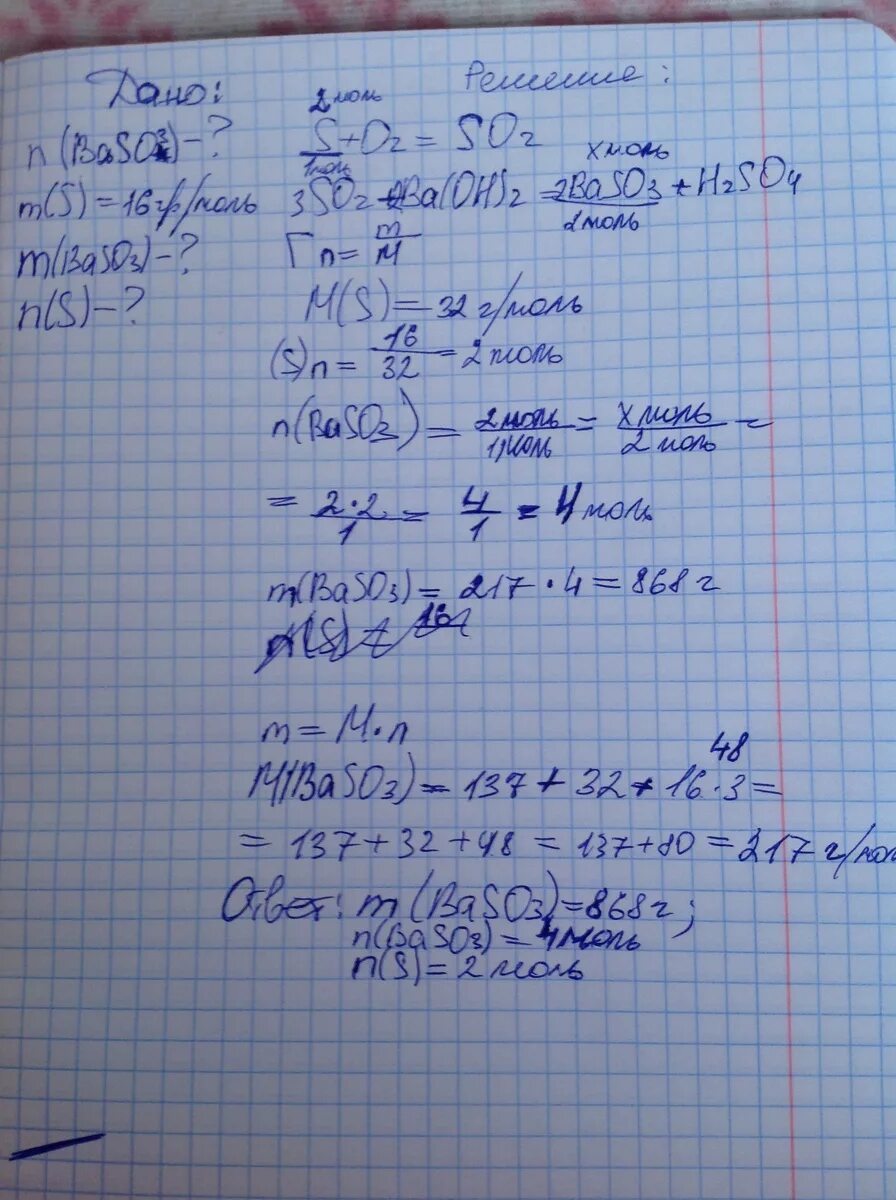 Дано:
n(BaSO3) – ?
m(S) = 16 гр/моль
m(BaSO3) – ?
n(S) – ?
Решение:
2 моль
S + O2 = SO2
1 моль
x моль
3SO2 + 2Ba(OH)2 = 2BaSO3 + H2SO4
2 моль
Г n = m/M
M(S) = 32 г/моль
(S)n = 16/32 = 2 моль
n(BaSO3) = 2 моль/1 моль = x моль/2 моль =
= 2·2/1 = 4/1 = 4 моль
m(BaSO3) = 217 · 4 = 868 г
m = M·n
48
M(BaSO3) = 137 + 32 + 16·3 =
= 137 + 32 + 48 = 137 + 80 = 217 г/мол
Ответ: m(BaSO3) = 868 г;
n(BaSO3) = 4 моль
n(S) = 2 моль